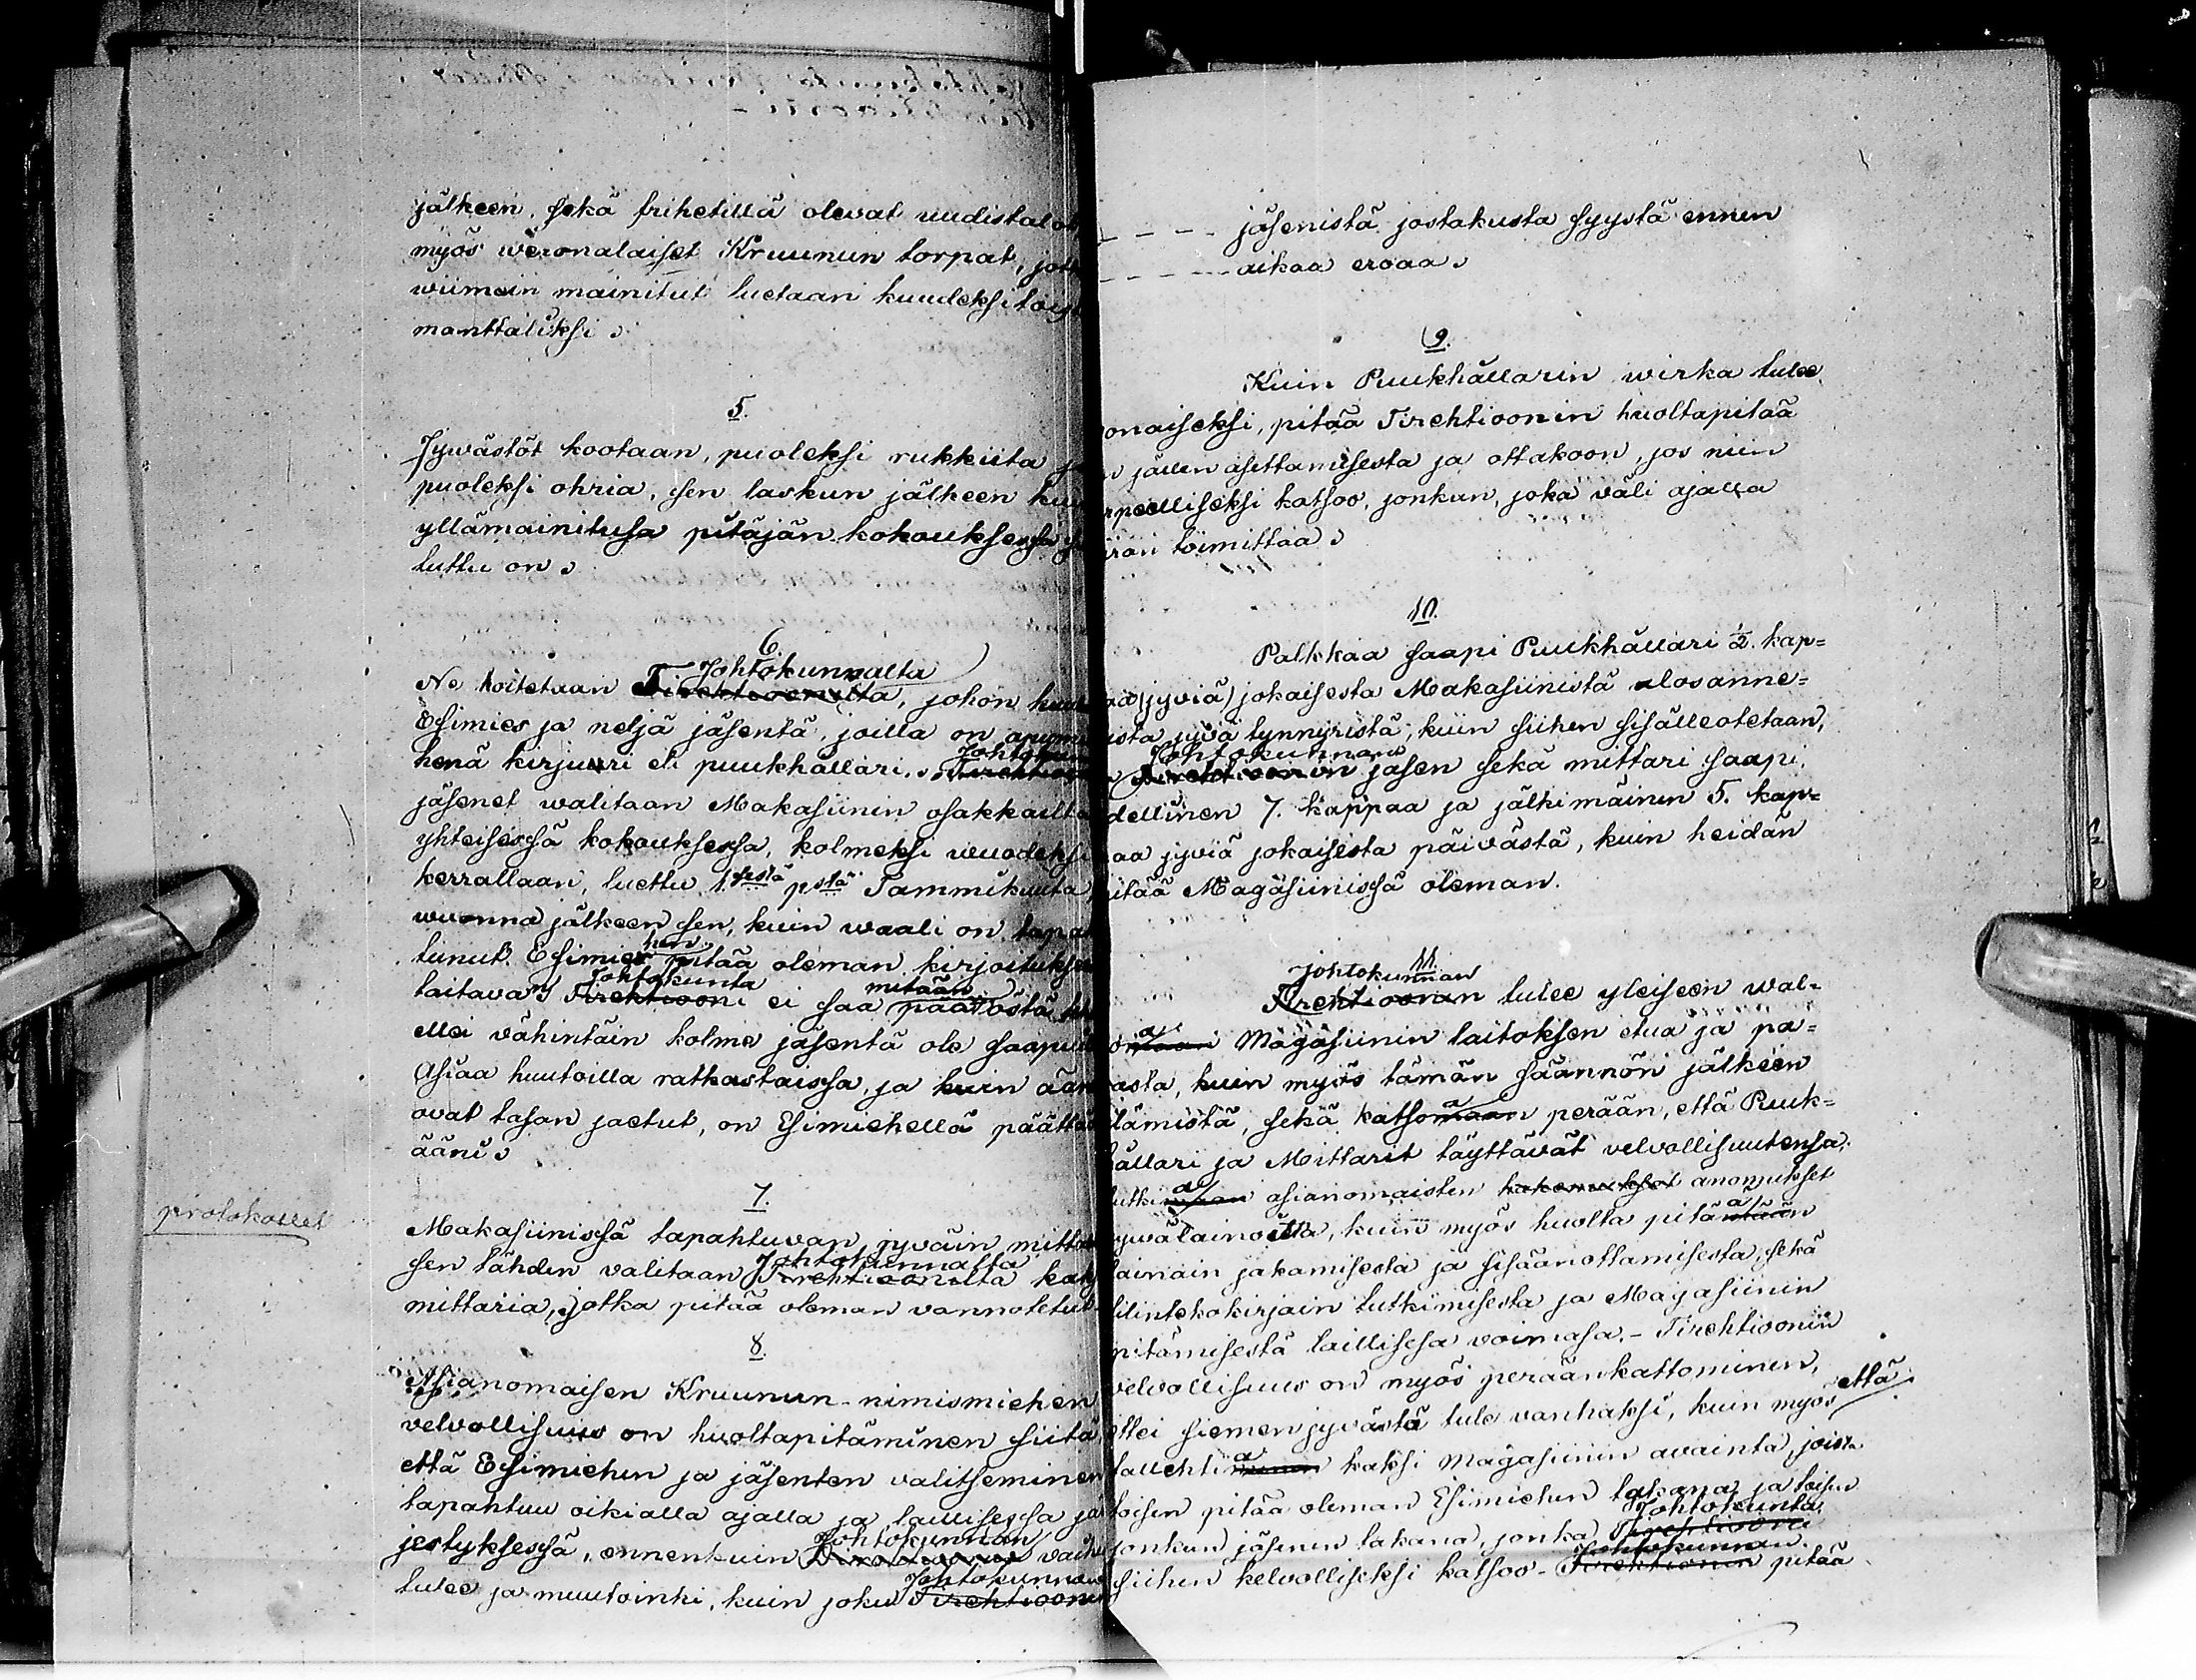 jälkeen, sekä frihetillä olevat uudistalot
myös weronalaiset Kruunun torpat, jotk
wiimein mainitut luetaan kuudeksitoist
manttaliksi.
5.
Jywästöt kootaan, puoleksi rukkiita ja
puoleksi ohria, sen laskun jälkeen ku
yllämainitusa pitäjän kokouksessa
tuttu on.
6.
Johtokunnalta
Ne hoitetaan Tirehtioonilta, johon kuul
Esimies ja neljä jäsentä, joilla on apumie
Johtokun
henä kirjuri eli puukhållari. Tirehtioo
jäsenet walitaan Makasiinin osakkailta
yhteisessä kokouksessa, kolmeksi wuodeksi
kerrallaan, luettu 1.sestä pstä Tammikuuta
wuonna jälkeen sen, kuin waali on tapah
hen
tunut. Esimies pitää oleman kirjoituksee
Johtokunta mitään
taitavan Tirehtiooni ei saa päätöstä
ellei vähintäin kolme jäsentä ole saapu
Asiaa huutoilla ratkastaissa, ja kuin ään
ovat tasan jaetut, on Esimiehellä päättä
ääni.
7.
protokollet
Makasiinissä tapahtuvan jyväin mitta
Johtokunnalta
sen tähden valitaan Tirehtioonilta kaks
mittaria, jotka pitää oleman vannotetut
8.
Asianomaisen Kruunun-nimismiehen
velvollisuus on huoltapitäminen siitä
että Esimiehen ja jäsenten valitseminen
tapahtuu oikialla ajalla ja laillisessa jä
Johtokunnan
jestyksessä, ennenkuin Direktioonin vaih
Johtokunnan
tulee ja muutoinki, kuin joku Tirehtioonin
jäsenistä jostakusta syystä ennen
aikaa eroaa.
9.
Kuin Puukhållarin wirka tulee
onaiseksi, pitää Tirehtioonin huoltapitää
n jällen asettamisesta ja ottakoon, jos niin
rpeelliseksi katsoo, jonkun, joka väli ajalla
iran toimittaa.
10.
Palkkaa saapi Puukhållari ½ kap=
paa (jyviä) jokaisesta Makasiinistä ulosanne=
ista jyvä tynnyristä, kuin siihen sisälleotetaan,
Johtokunnan
Direktioonin jäsen sekä mittari saapi,
dellinen 7. kappaa ja jälkimäinen 5. kap=
paa jyviä jokaisesta päivästä, kuin heidän
pitää Magasiinissä oleman.
11.
Johtokunnan
Tirehtioonin tulee yleiseen wal=
a
vontaan Magasiinin laitoksen etua ja pa=
rasta, kuin myös tämän säännön jälkeen
a
elämistä, sekä katsomaan perään, että Puuk=
hållari ja Mittarit täyttävät velvollisuutensa;
a
tutkimaan asianomaisten hakemukset anomukset
a
jyvälainoista, kuin myös huolta pitämään
lainain jakamisesta ja sisäänottamisesta, sekä
tilintekokirjain tutkimisesta ja Magasiinin
pitämisestä laillisesa voimasa. - Tirehtioonin
velvollisuus on myös peräänkattominen,
että
ettei siemenjyvästä tule vanhaksi, kuin myös
a
tallehtimaan kaksi Magasiinin avainta, joista
toisen pitää oleman Esimiehen takana ja toisen
Johtokunta
jonkun jäsenen takana, jonka Tirehtiooni
Johtokunnan
siihen kelvolliseksi katsoo - Tirehtioonin pitää